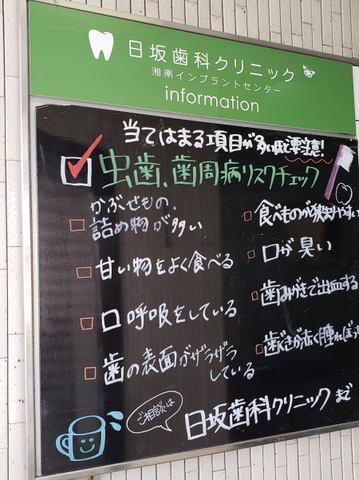 日坂歯科クリニック
湘南インプラントセンター
information
当てはまる項目が多いほど要注意!
虫歯、歯周病リスクチェック
かぶせもの、
詰め物が多い
甘い物をよく食べる
口呼吸をしている
歯の表面がザラザラ
している
食べものが挟まりやすい
口が臭い
歯みがきで出血する
歯ぐきが赤く腫れぼっ
ご相談は
日坂歯科クリニックまで